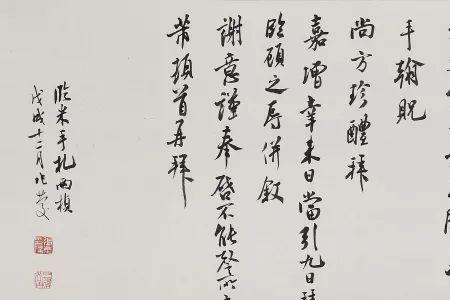 手翰貺
尚方珍醴拜
嘉增幸來日當引九日
臨顧之辱併敘
謝意謹奉啓不能罄所
芾頓首再拜
臨米手札兩
戊戌十二月